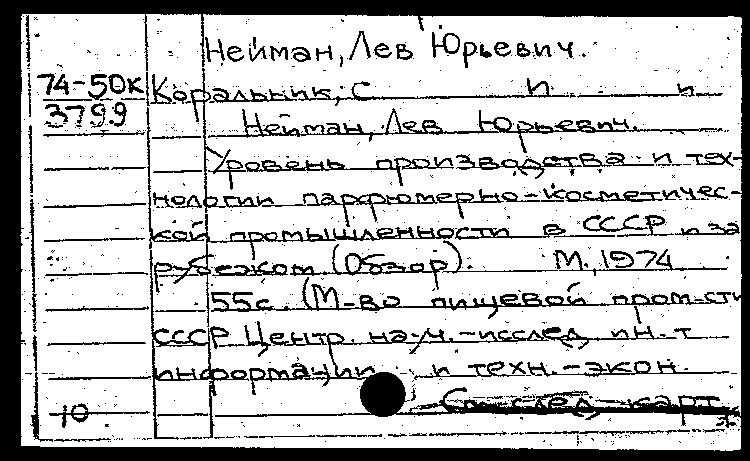 Нейман, Лев Юрьевич.
74-50к Коральник, С и и
3799 Нейман, Лев Юрьевич.
Уровень производства и тех-
нологии парфюмерно-косметичес-
кой промышленности в СССР и за
рубежом. (Обзор). М., 1974
55с. (М-во пищевой пром-сти
СССР Центр. науч.-исслед ин-т
информации и техн.-экон.
10 См след карт